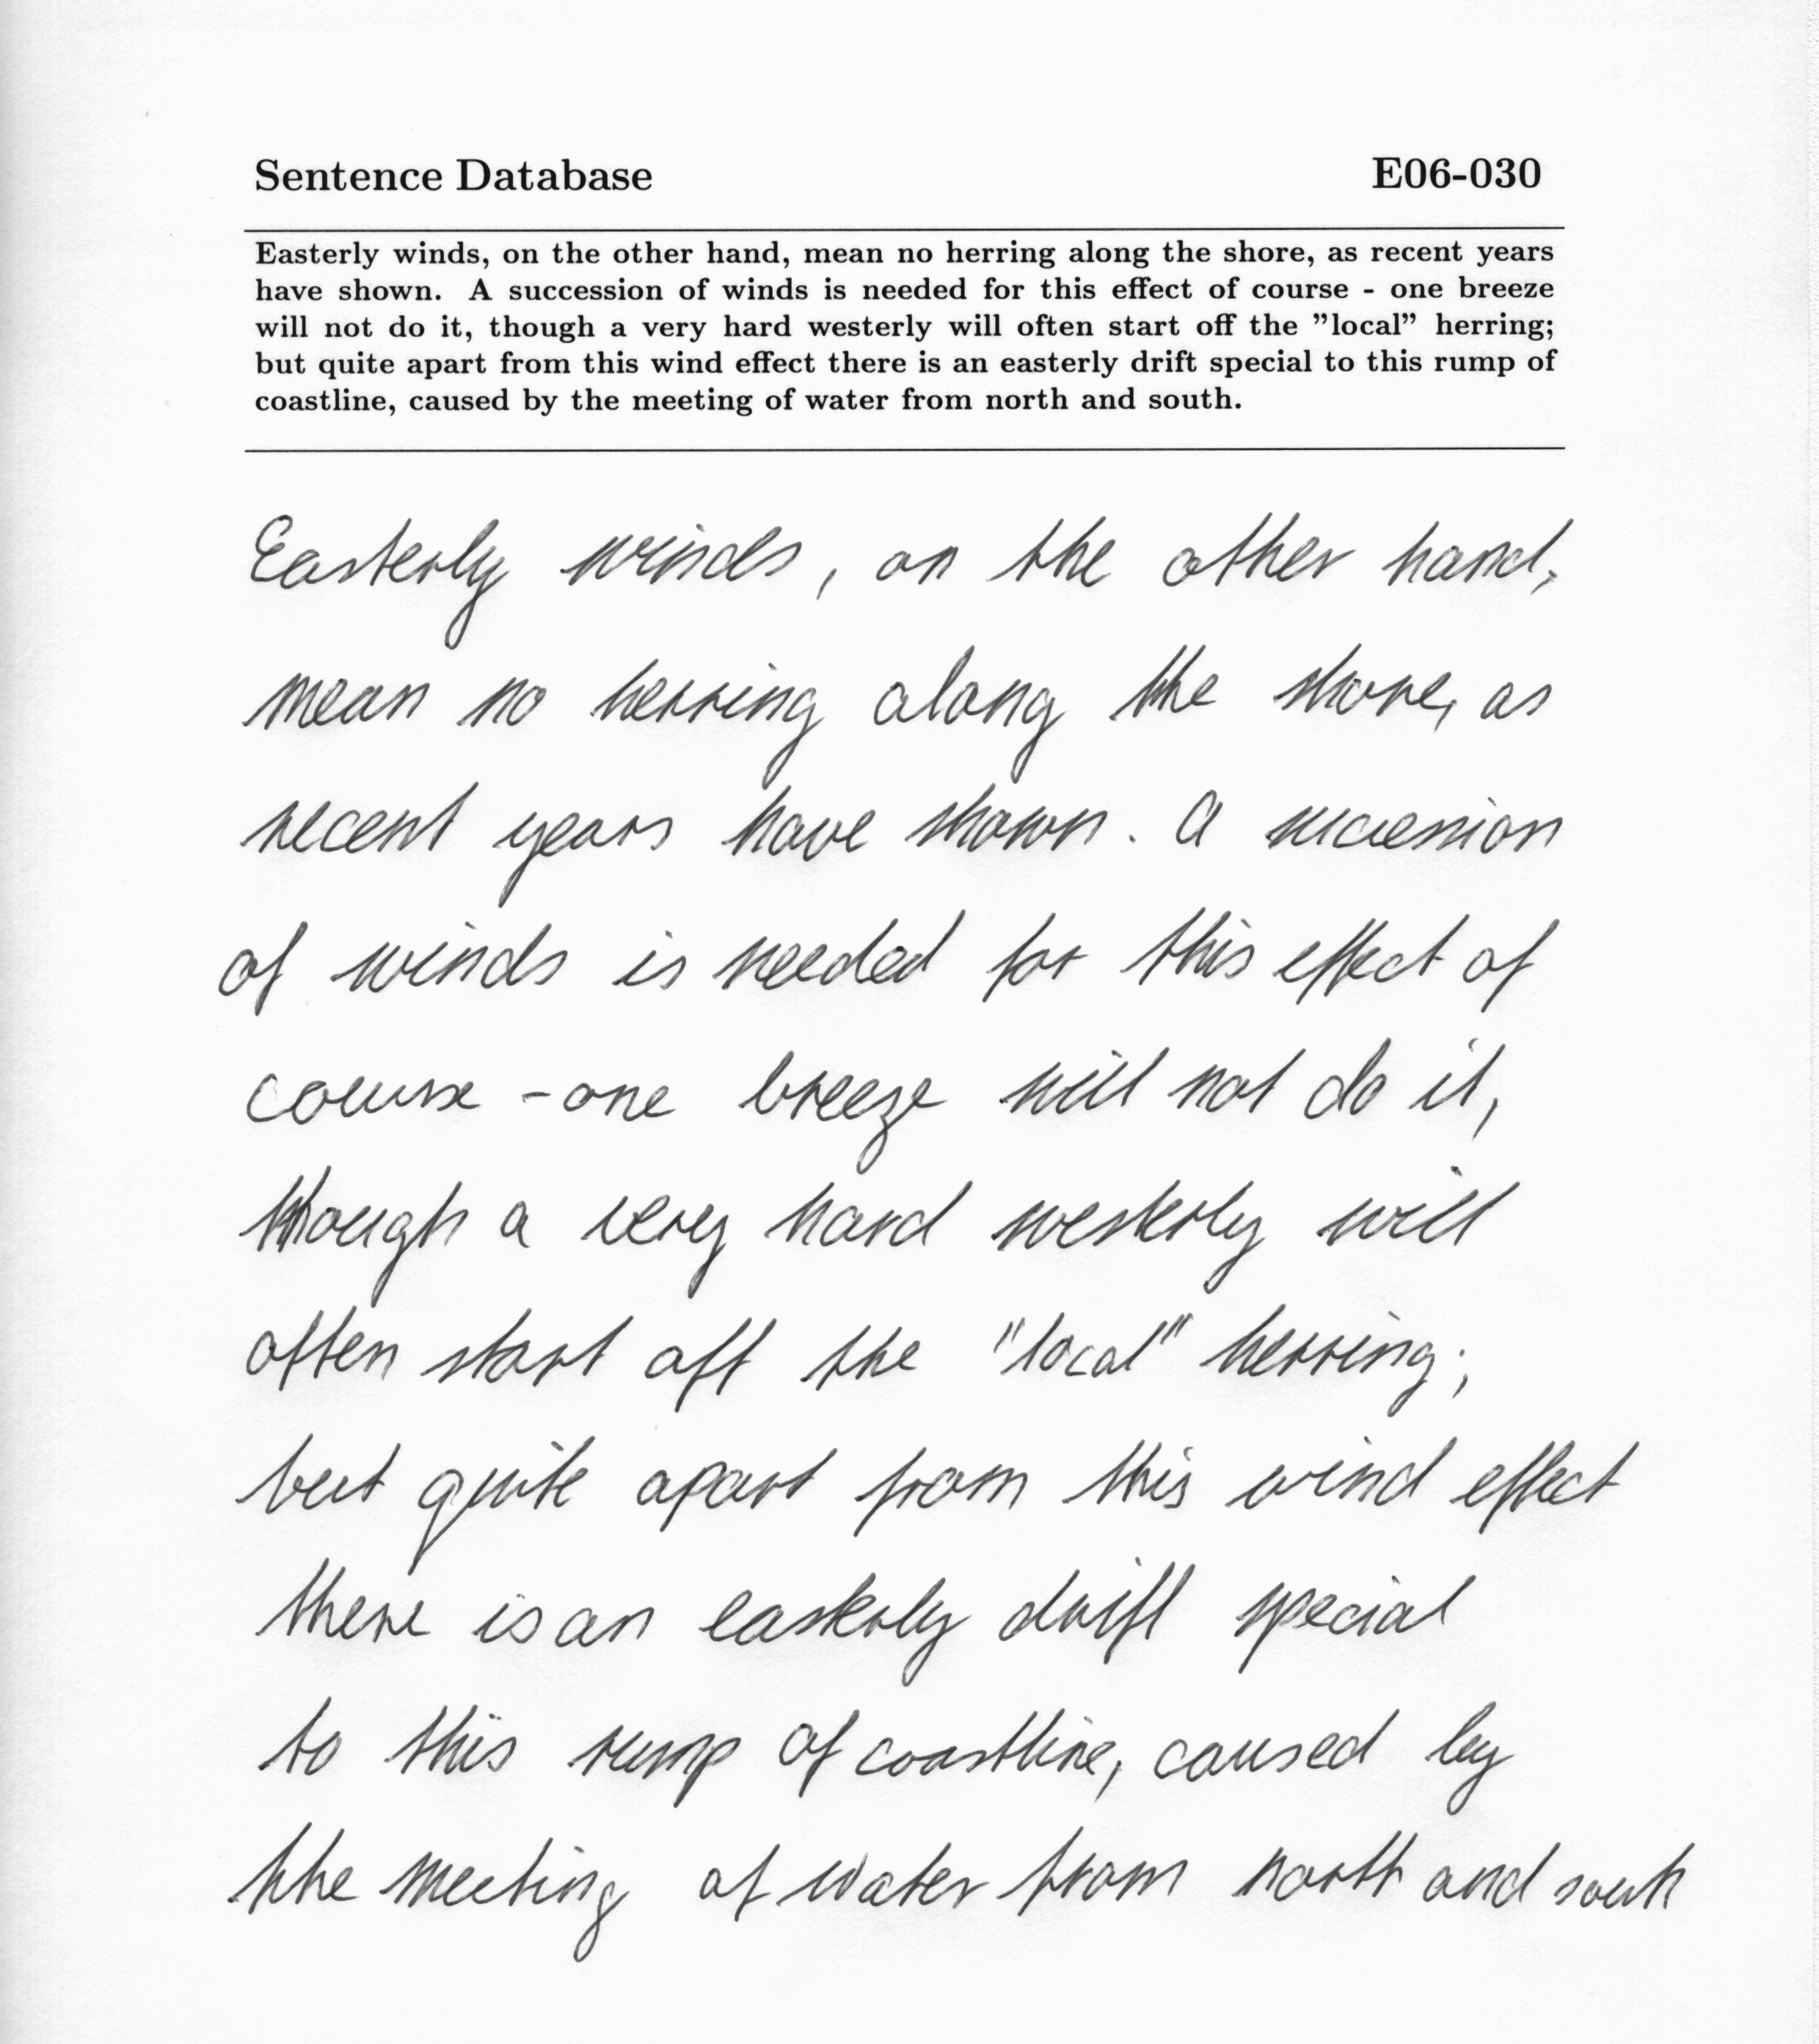 Sentence Database E06-030
Easterly winds, on the other hand, mean no herring along the shore, as recent years
have shown. A succession of winds is needed for this effect of course - one breeze
will not do it, though a very hard westerly will often start off the "local" herring;
but quite apart from this wind effect there is an easterly drift special to this rump of
coastline, caused by the meeting of water from north and south.
Easterly winds, on the other hand,
mean no herring along the shore, as
recent years have shown. A succession
of winds is needed for this effect of
course - one breeze will not do it,
though a very hard westerly will
often start off the "local" herring;
but quite apart from this wind effect
there is an easterly drift special
to this rump of coastline, caused by
the meeting of water from north and south